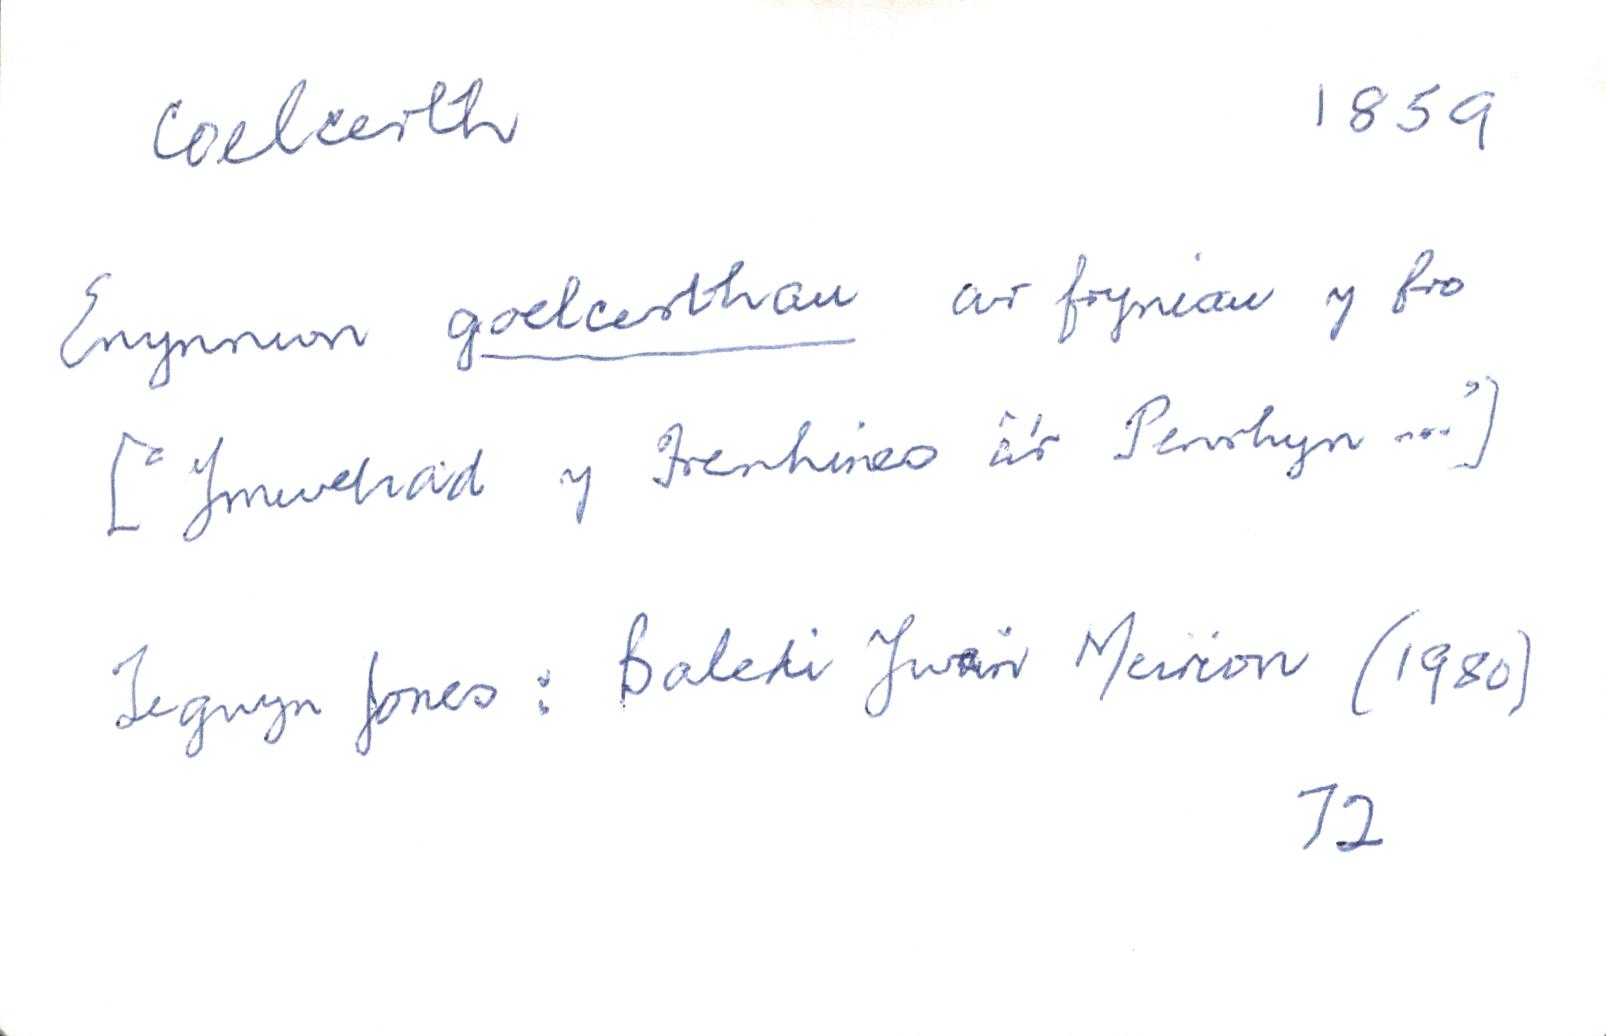 coelcerth 1859
Enynnwn goelcerthau ar fryniau y fro
['Ymweliad y Frenhines â'r Penrhyn ...']
Tegwyn Jones: Baledi Ywain Meirion (1980)
72